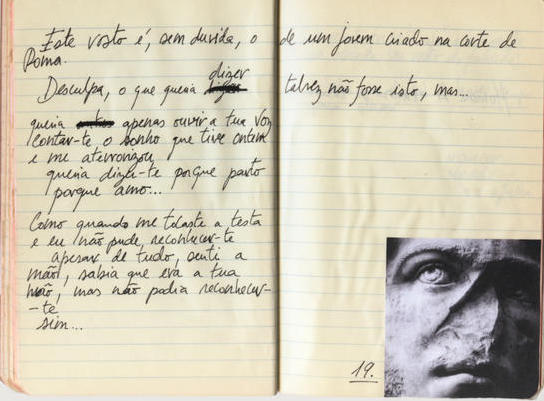 Este rosto é, sem duvida, o de um jovem criado na corte de
Roma.
Desculpa, o que queria dizer talvez não fosse isto, mas...
queria apenas ouvir a tua voz
contar-te, o sonho que tive ontem
e me aterrorizou
queria dizer-te porque parto
porque amo...
Como quando me tocaste a testa
e eu não pude, reconhecer-te
apesar de tudo, senti a
mão, sabia que era a tua
mão, mas não podia reconhecer-
-te
sim...
19.